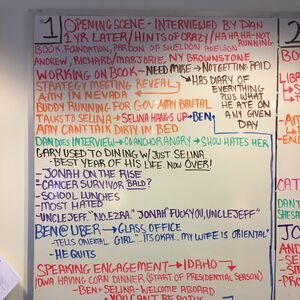 1 OPENING SCENE - INTERVIEWED BY DAN
1 YR LATER/HINTS OF CRAZY/HA HA HA-NOT RUNNING
BOOK, FOUNDATION, PARDON OF SHELDON ADELSON
ANDREW, RICHARD/MARJORIE, NY BROWNSTONE
WORKING ON BOOK - NEED MIKE → NOT GETTING PAID
STRATEGY MEETING REVEAL
→ HAS DIARY OF EVERYTHING PLUS WHAT HE ATE ON ANY GIVEN DAY
AMY IN NEVADA
BUDDY RUNNING FOR GOV - AMY BRUTAL
TALKS TO SELINA → SELINA HANGS UP → BEN
AMY CAN'T TALK DIRTY IN BED
DAN DOES INTERVIEW → CO ANCHOR ANGRY → SHOW HATES HER
GARY USED TO DINING W/ JUST SELINA
- BEST YEAR OF HIS LIFE NOW OVER!
- JONAH ON THE RISE
- CANCER SURVIVOR BALD?
- SCHOOL LUNCHES
- MOST HATED
- UNCLE JEFF: "NO, EZRA." JONAH "FUCK YOU, UNCLE JEFF"
BEN @ UBER → GLASS OFFICE
- TELLS ORIENTAL GIRL "IT'S OKAY.. MY WIFE IS ORIENTAL"
→ HE QUITS
SPEAKING ENGAGEMENT → IDAHO
IOWA HAVING CORN DINNER (START OF PRESIDENTIAL SEASON)
- BEN + SELINA - WELCOME ABOARD
- YOU CAN'T BE
2